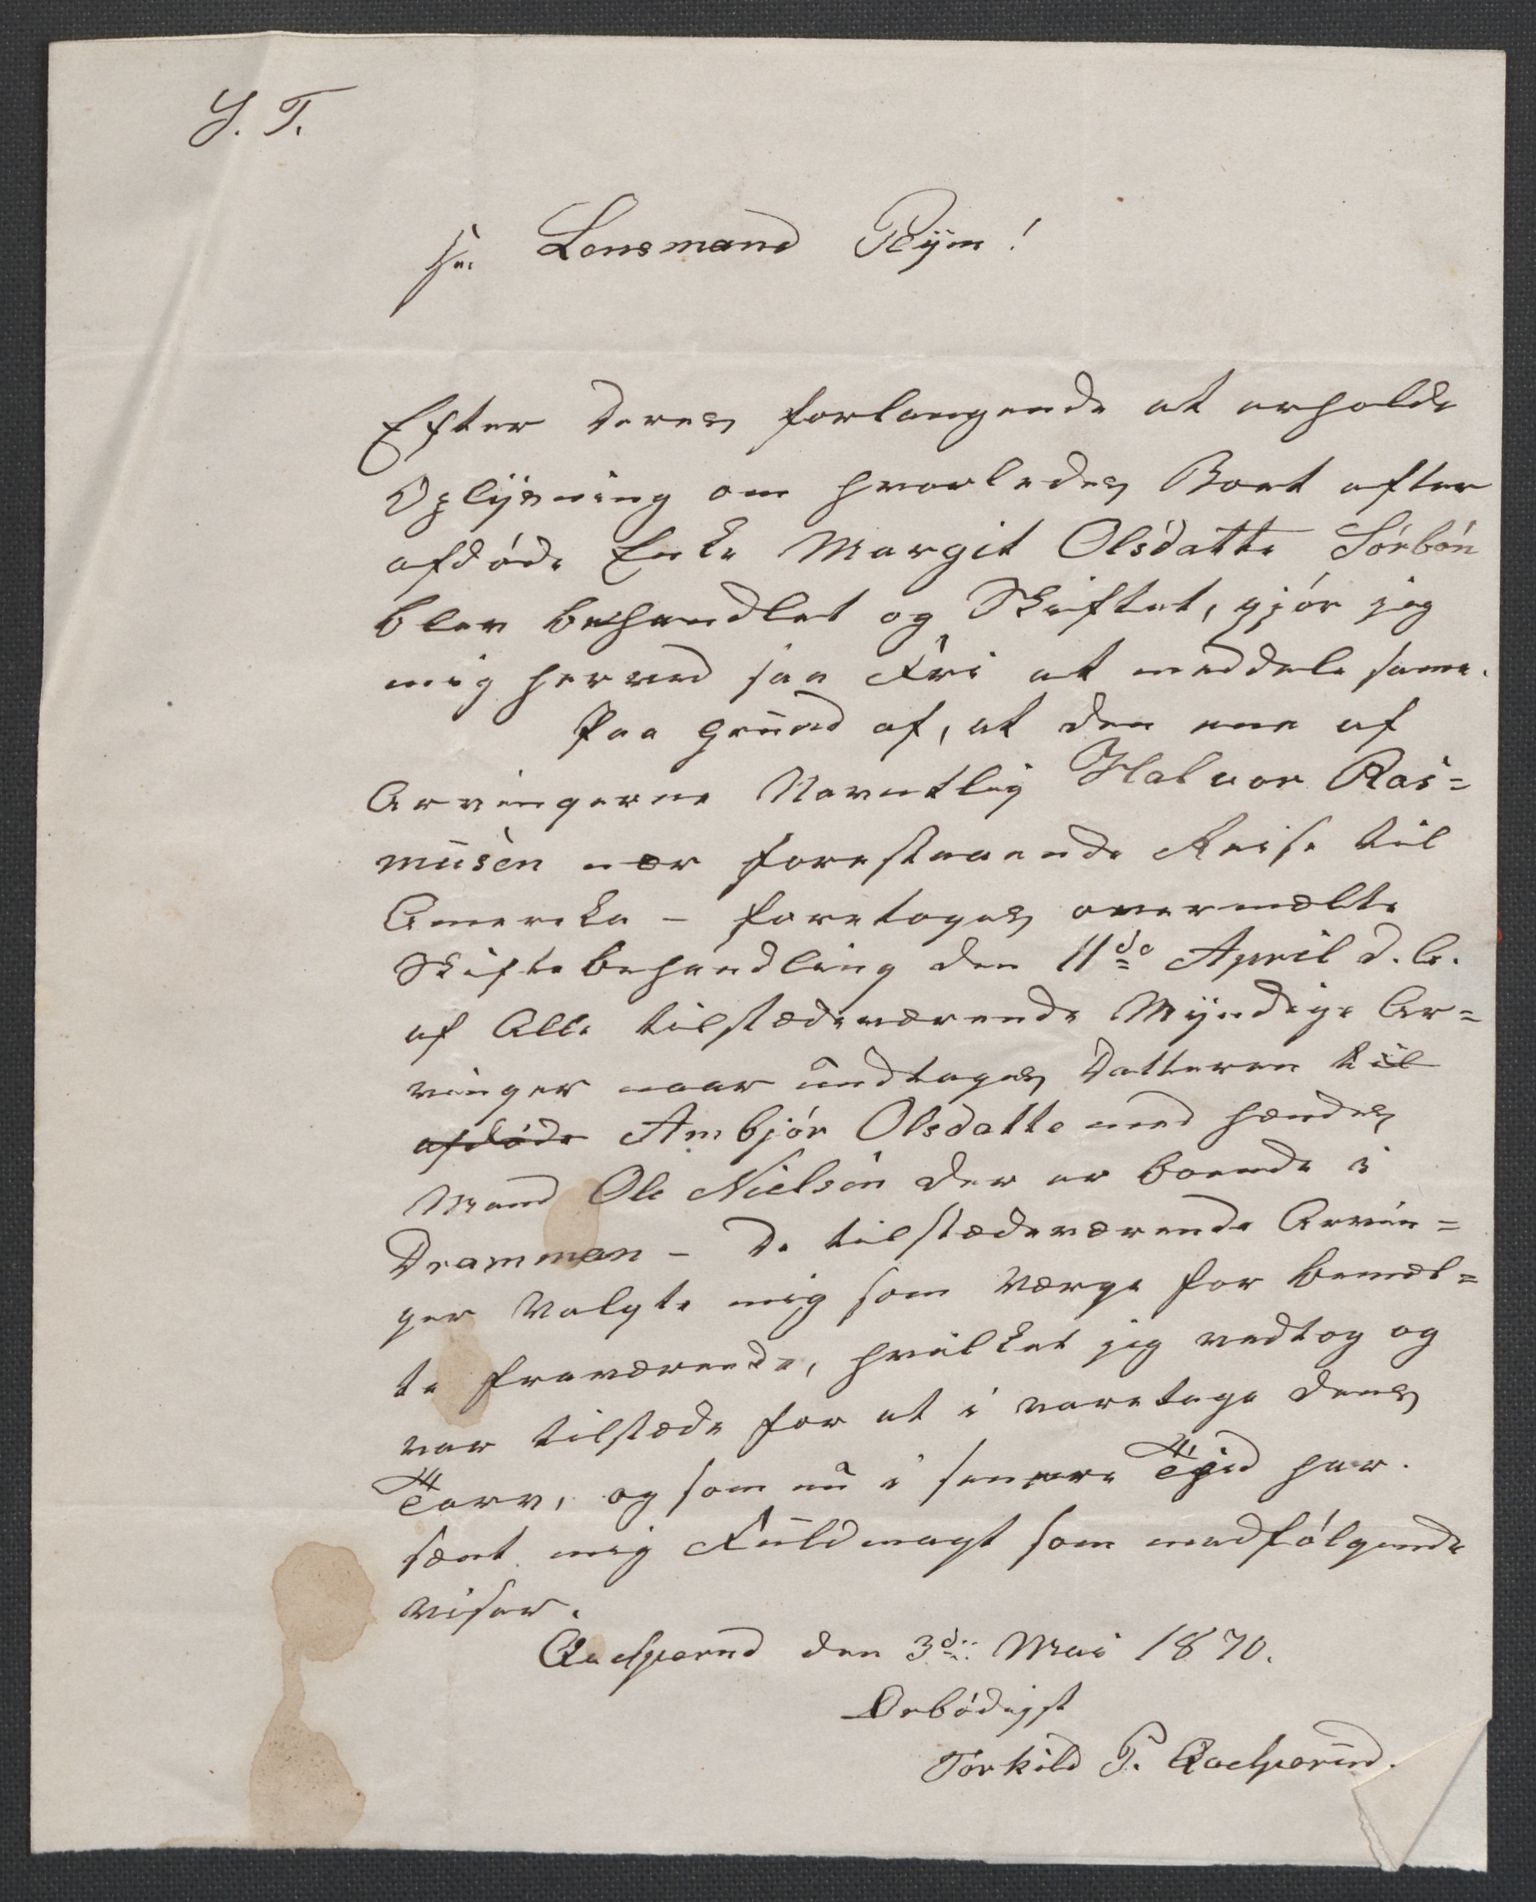 S. T.
Hr. Lensmand Rÿen!
Efter Deres forlangende at erholde
Oplÿsning om hvorledes Boet efter
afdøde Enke Margit Olsdatte Sørbøn
blev behandlet og Skiftet, gjør jeg
mig herved saa Fri at meddele same.
Paa grund af, at den ene af
Arvingerne Navntlig Halvor Ras=
musen nær forestaaende Reise til
Amereka – foretoges overmælte
Skiftebehandling den 11de April d. A.
af Alle tilstædeværende Mÿndige Ar=
vinger naar undtages Datteren til
afdøde Ambjør Olsdatte med hændes
Mand Ole Nielsen der er boende i
Drammen – De tilstædeværende Arvin=
ger Valgte mig som Værge for bemæl=
te fraværende, hvilket jeg vedtog og
var tilstæde for at i varetage dens
Tarv, og som nu i senere Tiid har
sænt mig Fuldmagt som medfølgende
viser.
den 3die Mai 1870.
Ærbødigst
Torkild T.